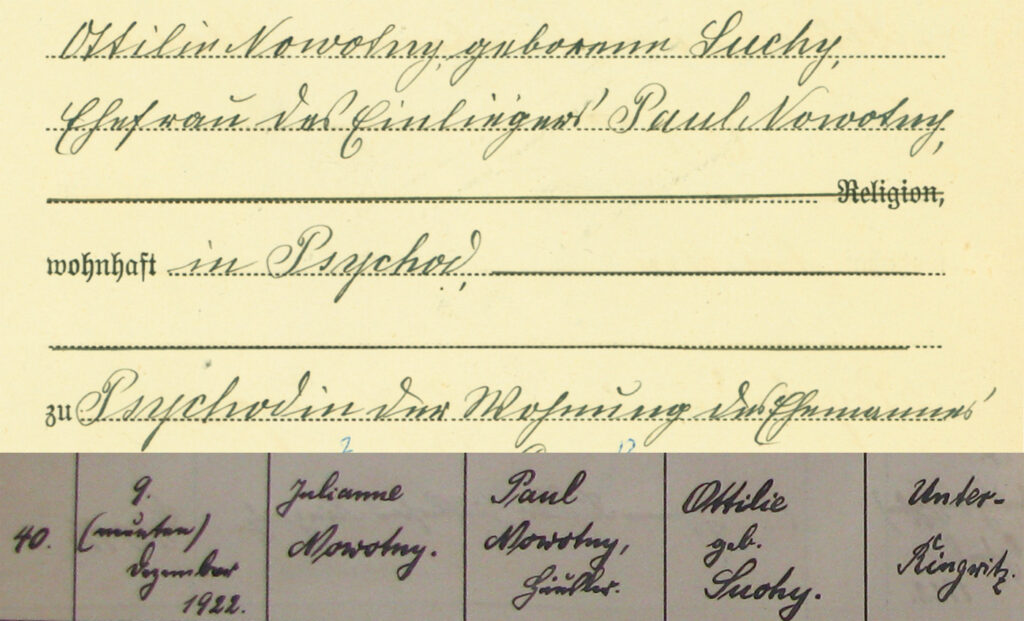 Ottilie Nowotny, geborene Suchy,
Ehefrau des Einliegers Paul Nowotny,
Religion,
wohnhaft in Psychod,
zu Psychod in der Wohnung des Ehemannes
40.
9.
(neunten)
Dezember
1922.
Julianne
Nowotny.
Paul
Nowotny,
Häusler.
Ottilie
geb.
Suchy.
Unter-